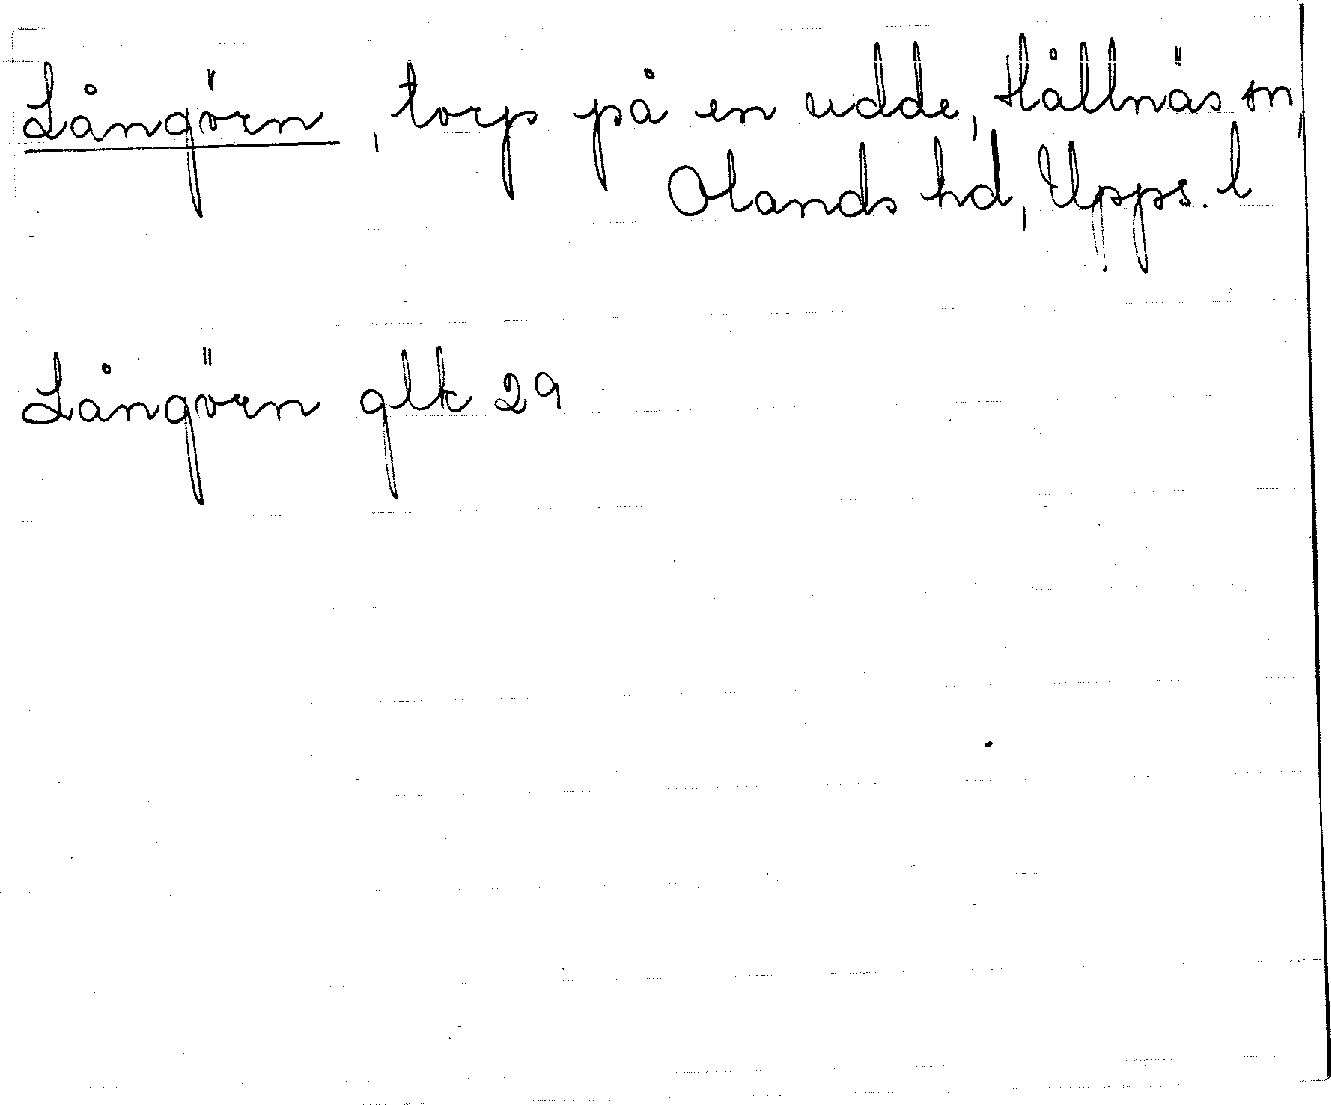 Långörn, torp på en udde, Hållnäs sn,
Olands hd, Upps. l
Långörn glk 29